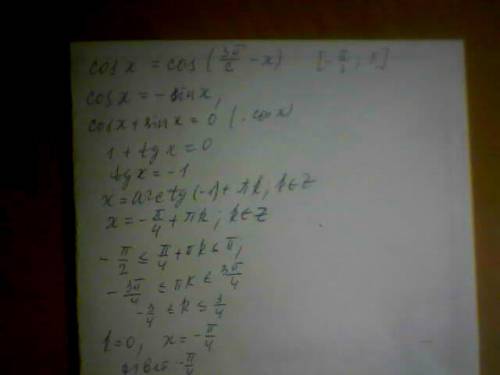 cos x = cos (3π/2 - x) [-π/2; π]
cos x = - sin x,
cos x + sin x = 0 (: cos x)
1 + tg x = 0
tg x = -1
x = arctg (-1) + πk; k∈Z
x = -π/4 + πk; k∈Z
-π/2 ≤ π/4 + πk ≤ π;
-3π/4 ≤ πk ≤ 3π/4
-3/4 ≤ k ≤ 3/4
k=0, x = -π/4
ответ -π/4